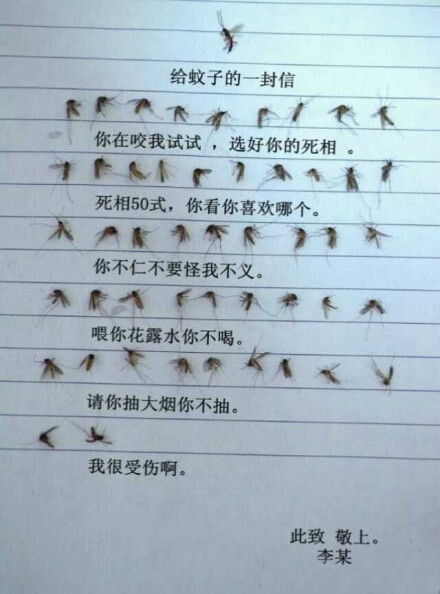 给蚊子的一封信
你在咬我试试，选好你的死相。
死相50式，你看你喜欢哪个。
你不仁不要怪我不义。
喂你花露水你不喝。
请你抽大烟你不抽。
我很受伤啊。
此致 敬上。
李某